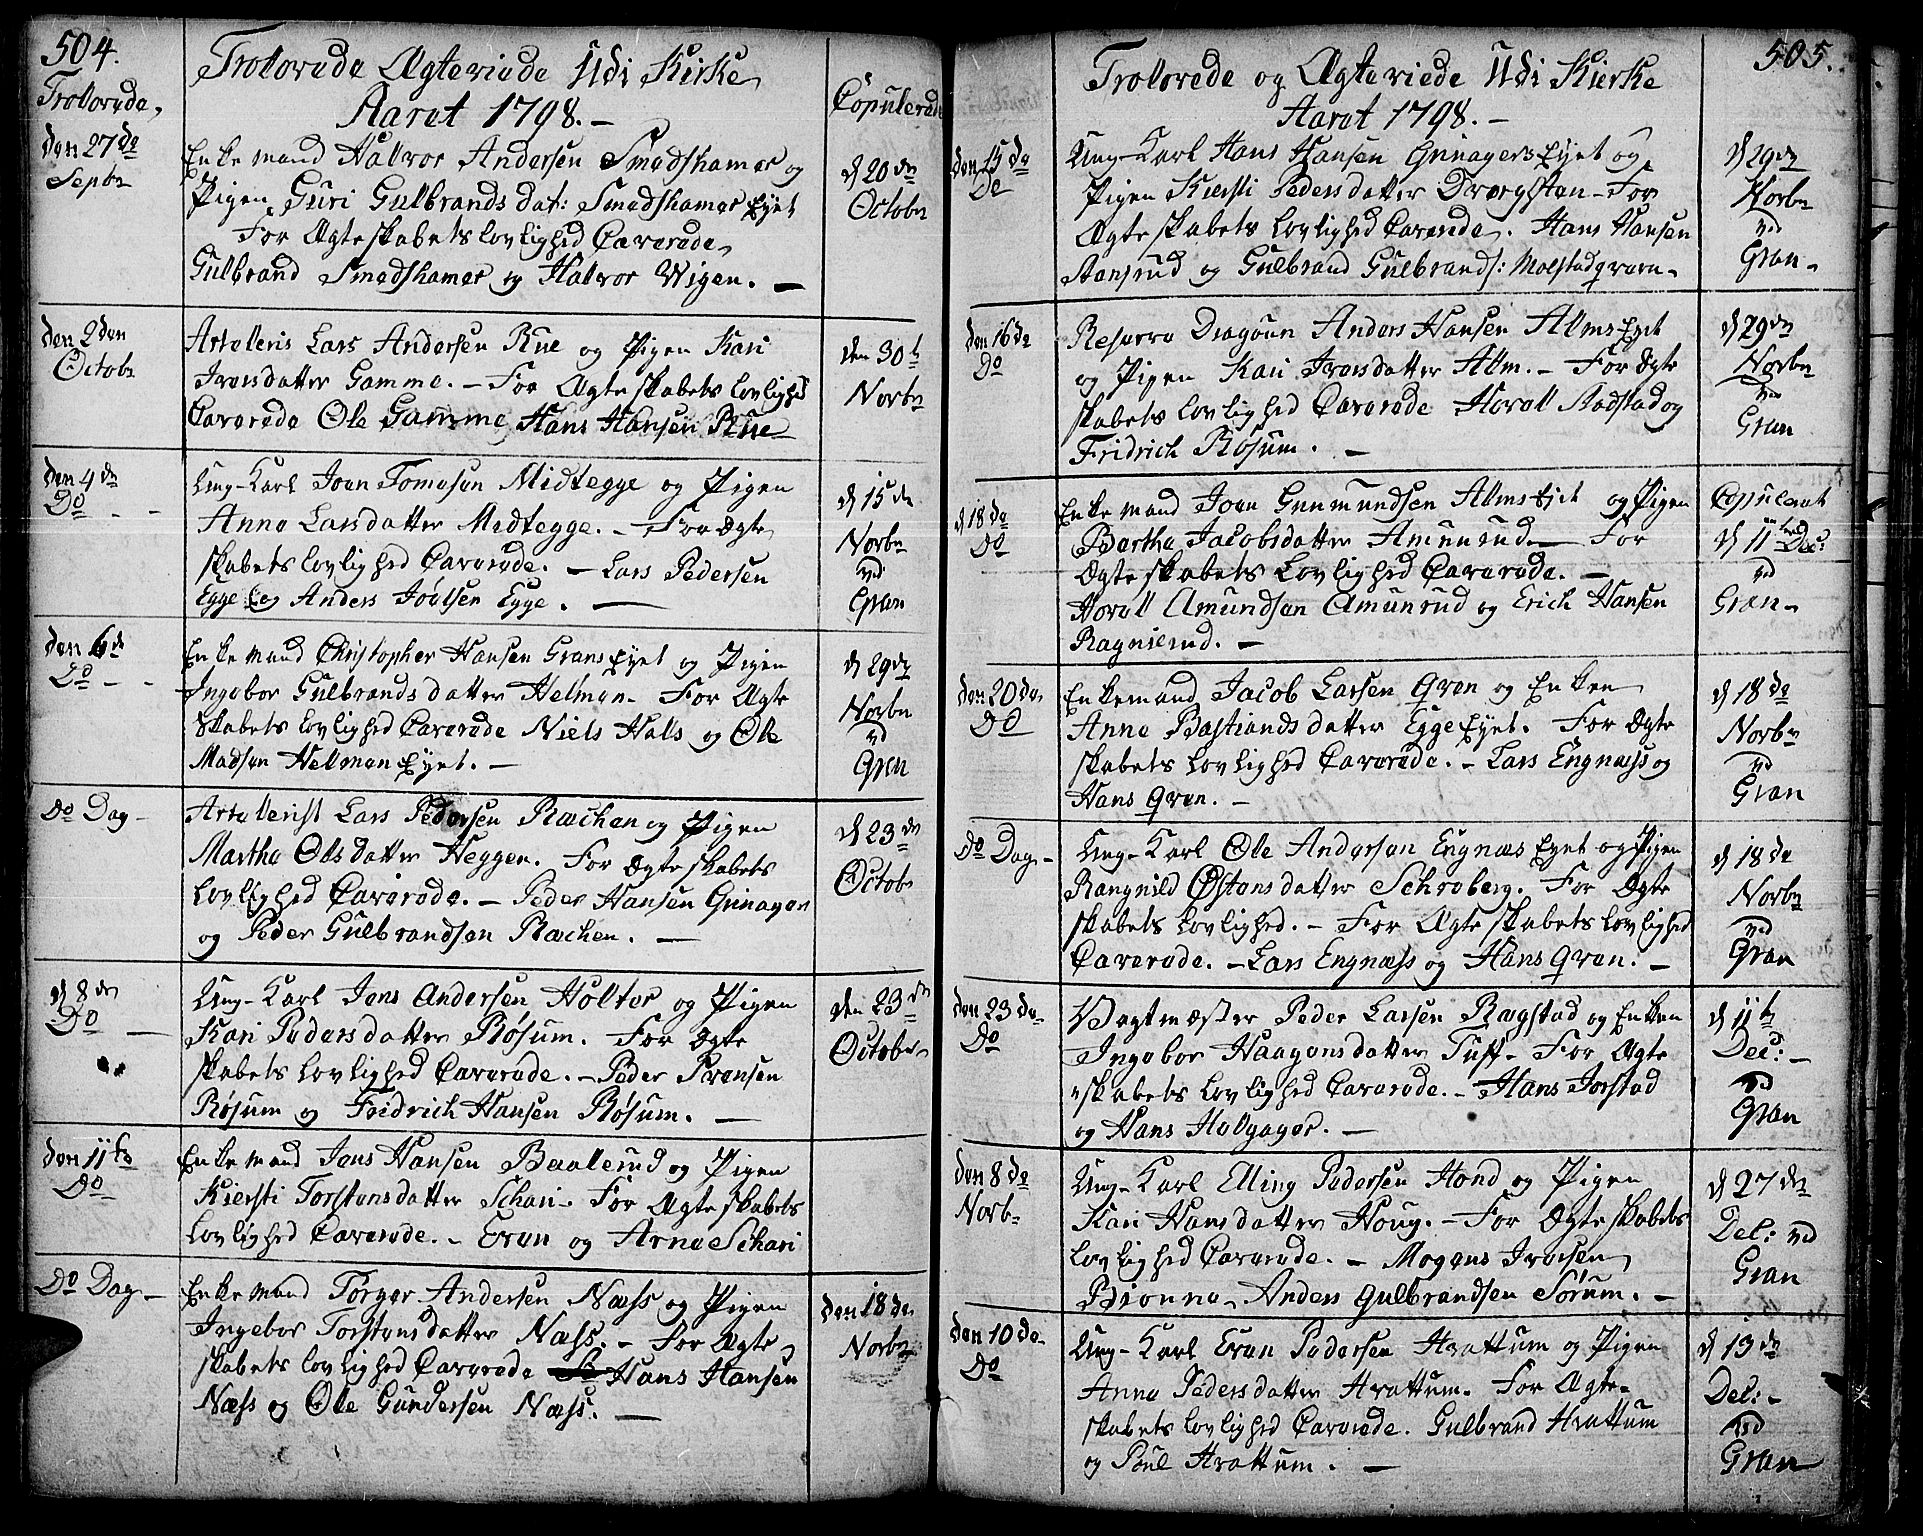 504.
Trolovede Ægteviede Udi Kirke
Aaret 1798. –
Trolovede
Copulerede
den 27de
Septbr
Enkemand Halvor Andersen Smedshamer og
Pigen Guri Gulbrands dat: Smedshamer Eyet
For Ægteskabets Lovlighed Caverede
Gulbrand Smedshamer og Halvor Wigen. –
d 20de
Octobr
den 2den
Octobr
Artalleris Lars Andersen Rue og Pigen Kari
Iversdatter Gamme. – For Ægteskabets Lovlighed
Caverede Ole Gamme, Hans Hansen Rue
den 30te
Novbr
den 4de
Do – –
Ung-Karl Joen Tomesen Midtegge og Pigen
Anne Larsdatter Midtegge. – For Ægte
skabets Lovlighed Caverede. – Lars Pedersen
Egge og Anders Joelsen Egge. –
d 15de
Novbr
vd
Gran
den 6de
Do – –
Enkemand Christopher Hansen Grans Eyet og Pigen
Ingebor Gulbrands datter Helmen – For Ægte
skabets Lovlighed Caverede Niels Hals og Ole
Madsen Helmen Eyet. –
d 29de
Novbr
vd
Gran
Do Dag –
Artallerist Lars Pedersen Ræchen og Pigen
Martha Olsdatter Heggen. For Ægteskabets
Lovlighed Caverede. – Peder Hansen Grinager
og Peder Gulbrandsen Ræchen. –
d 23de
Octobr
d 8de
Do –
Ung-Karl Jens Andersen Holter og Pigen
Kari Pedersdatter Røsum. For Ægte
skabets Lovlighed Caverede. – Peder Svensen
Røsum og Fridrich Hansen Røsum. –
den 23de
Octobr
den 11te
Do
Enkemand Jens Hansen Ballerud og Pigen
Kiersti Torstensdatter Schari – For Ægteskabets
Lovlighed Caverede. – Even og Arne Schari
Do Dag –
Enkemand Torger Andersen Næss og Pigen
Ingebor Torstensdatter Næss. – For Ægte
skabets Lovlighed Caverede Hans Hansen
Næss og Ole Gundersen Næss. –
den 18de
Novbr
505.
Trolovede og Ægteviede Udi Kierke
Aaret 1798. –
den 15de
Do
Ung-Karl Hans Hansen Grinagers Eyet og
Pigen Kiersti Pedersdatter Dvergsten – For
Ægteskabets Lovlighed Caverede. Hans Hansen
Aansrud og Gulbrand Gulbrands: Molstadqvern –
d 29de
Novbr
vd
Gran –
den 16de
Do
Reserve Dragoun Anders Hansen Alms Eyet
og Pigen Kari Iversdatter Alm. – For Ægte
skabets Lovlighed Caverede Hovall Aadstad og
Fridrich Røsum. –
d 29de
Novbr
vd
Gran
d 18de
Do
Enkemand Joen Gunmundsen Alms Eiet og Pigen
Bertha Jacobsdatter Amunrud – For
Ægteskabets Lovlighed Caverede. –
Hovall Amundsen Amunrud og Erich Hansen
Ragnierud. –
Copulerit
d 11te Dec:
vd
Gran –
den 20de
DO
Enkemand Jacob Larsen Gren og Enken
Anne Bastiands datter Egge Eyet. For Ægte
skabets Lovlighed Caverede. – Lars Engnæss og
Hans Gren. –
d 18de
Novbr
vd
Gran
Do Dag –
Ung-Karl Ole Andersen Engnæs Eyet og Pigen
Rangnild Østensdatter Schroberg. For Ægte
skabets Lovlighed. – For Ægteskabets Lovlighed
Caverede. – Lars Engnæss og Hans Gren. –
d 18de
Novbr
vd
Gran
den 23de
Do
Vagtmæster Peder Larsen Rægstad og Enken
Ingebor Haagensdatter Tuff – For Ægte
skabets Lovlighed Caverede. – Hans Jorstad
og Hans Helgager. –
d 11te
Dec: –
vd
Gran
den 8de
Novbr
Ung-Karl Elling Pedersen Hond og Pigen
Kari Hansdatter Houg. – For Ægteskabets
Lovlighed Caverede. – Mogens Iversen
Brønne, Anders Gulbrandsen Sørum. –
d 27de
Del: vd
Gran
den 10de
Do
Ung-Karl Even Pedersen Hvattum og Pigen
Anne Pedersdatter Hvattum. For Ægte
skabets Lovlighed Caverede. Gulbrand Hvattum
og Poul Hvattum. –
d 13de
Del: –
vd
Gran